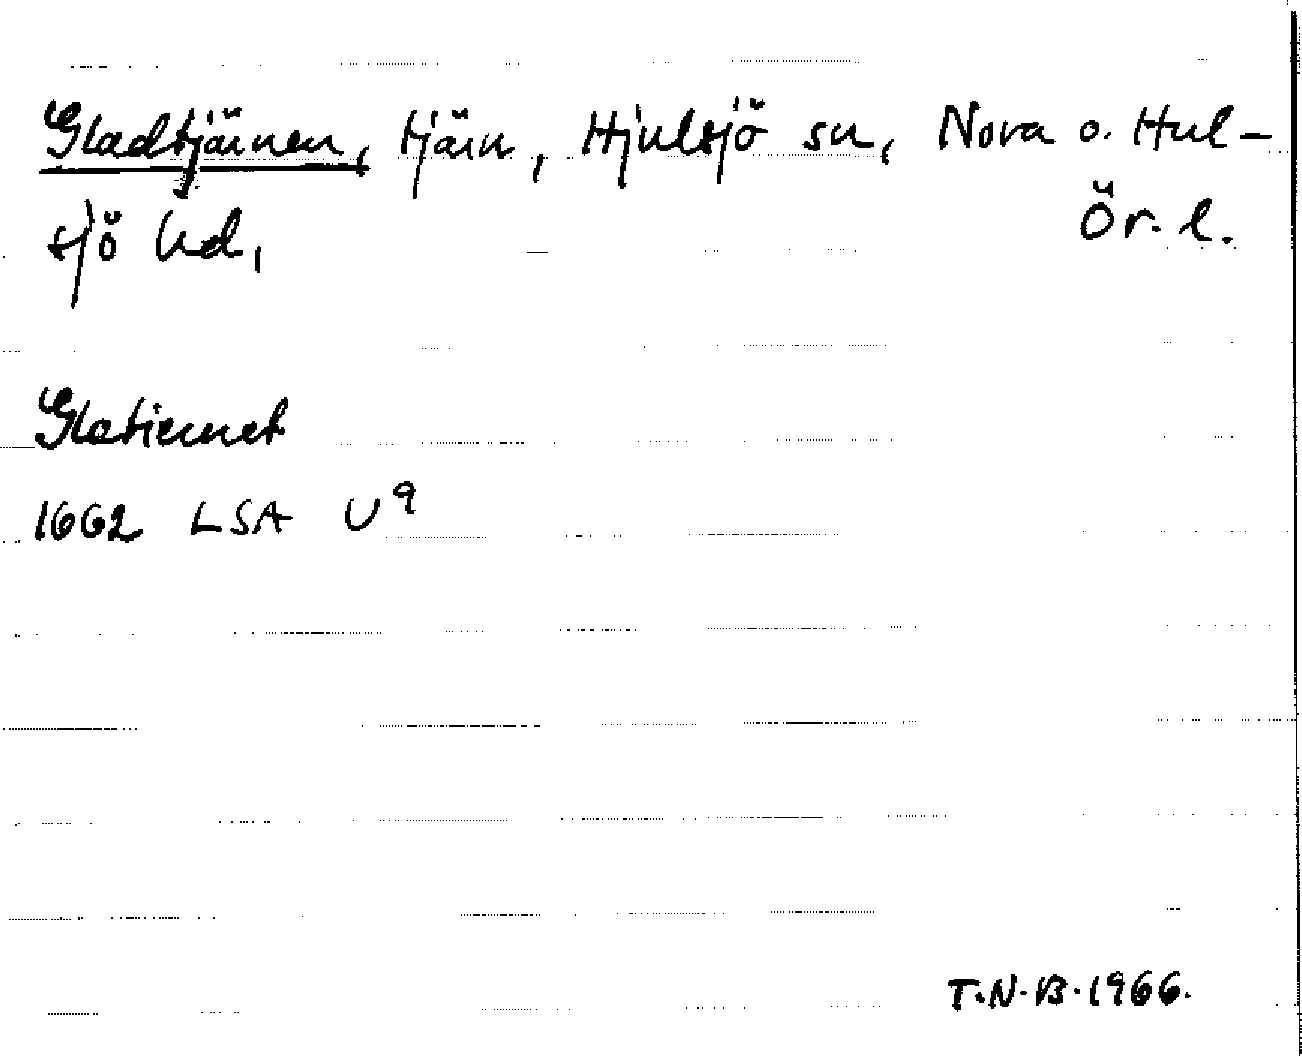 Gladtjärnen, tjärn, Hjulsjö sn, Nora o. Hul-
sjö hd, Ör. l.
Glatiernet
1662 LSA U9
T.N.B. 1966.